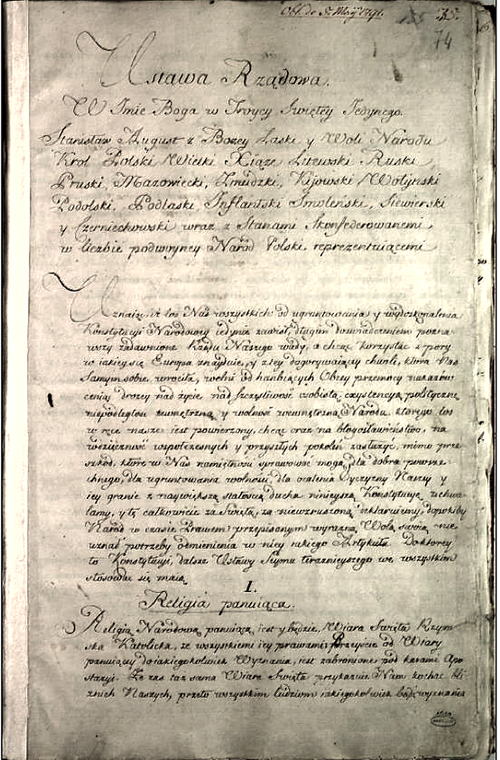 Ustawa Rządowa.
W Imie Boga w Troycy Swiętey Jedynego.
Stanisław August z Bożey Łaski y Woli Narodu
Krol Polski Wielki Xiąże Litewski Ruski
Pruski, Mazowiecki, Zmudzki, Kijowski Wołyński
Podolski, Podlaski Inflantski Smoleński, Siewierski
y Czerniechowski wraz z Stanami Skonfederowanemi
w liczbie podwoyney Naród Polski reprezentuiącemi
Uznaiąc, iż los Nas wszystkich od ugruntowania y wydoskonalenia
Konstytucyi Narodowey iedynie zawisł, długim doswiadczeniem pozna-
wszy zadawnione Rządu Naszego wady, a chcąc korzystać z pory
w iakiey się Europa znayduie, y z tey dogorywaiącey chwili, która Nas
Samym sobie wrociła, wolni od hanbiących Obcey przemocy nakazów
ceniąc drożey nad życie nad szczęśliwość osobistą, exystencyą polityczną
niepodległość zewnętrzną y wolność wewnętrzną Narodu, ktorego los
w ręce nasze iest powierzony, chcąc oraz na błogosławieństwo, na
wdzięczność współczesnych y przyszłych pokoleń zasłużyć, mimo prze-
szkod, które w Nas namiętności sprawować mogą, dla dobra powsze-
chnego, dla ugruntowania wolności, dla ocalenia Oyczyzny Naszey y
iey granic z naywiększą stałością ducha ninieyszą Konstytucyę uchwa-
lamy, y tę całkowicie za Swiętą, za niewzruszoną deklaruiemy, dopokiby
Naród w czasie Prawem przepisanym wyrazną Wolą swoią nie
uznał potrzeby odmienienia w niey iakiego Artykułu. Do ktorey
to Konstytucyi dalsze Ustawy Seymu teraznieyszego we wszystkim
stosować się maią.
I.
Religia panuiąca.
Religią Narodową panuiącą, iest y będzie, Wiara Swięta Rzym-
ska Katolicka, ze wszystkiemi iey prawami; Przeyscie od Wiary
panuiącey do iakiegokolwiek Wyznania, iest zabronione pod karami Apo-
stazyi. Ze zaś taż sama Wiara Swięta przykazuie Nam kochać bli-
znich Naszych, przeto wszystkim ludziom iakiegokolwiek bądź wyznania